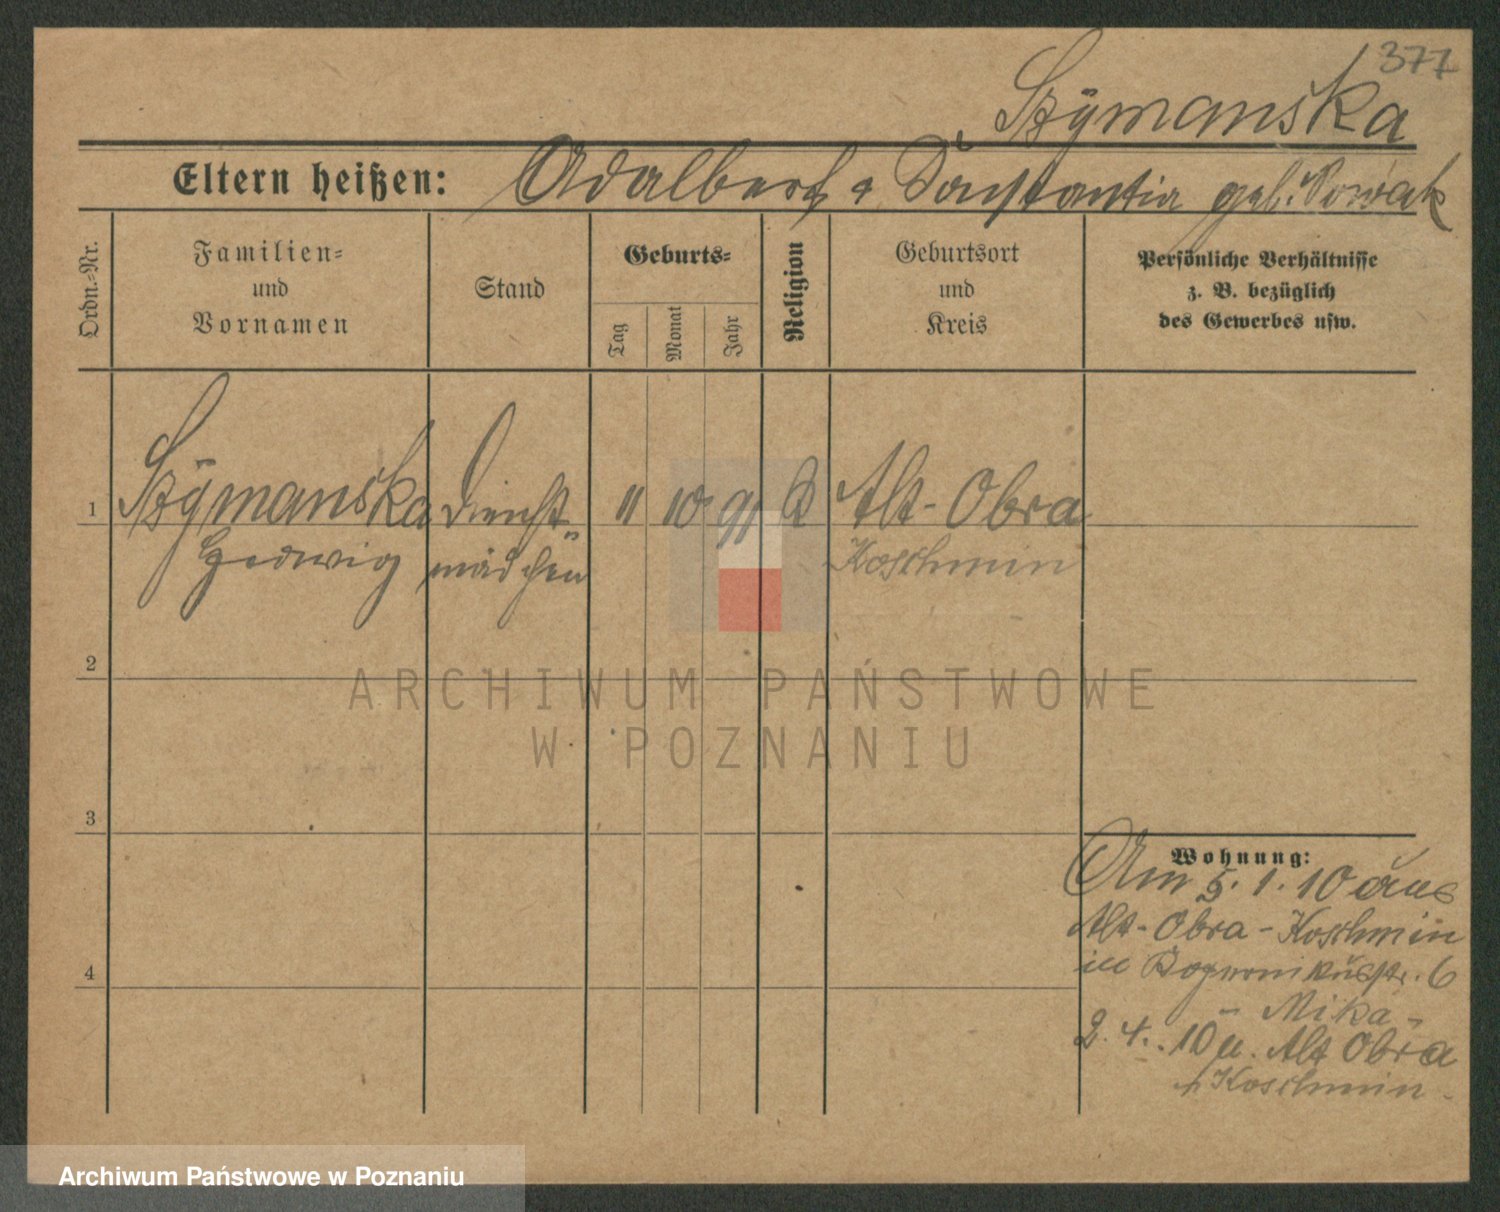 377
Szymanska
Eltern heißen: Adalbert & Konstantia geb. Nowak
Ordn.-Nr.
Familien-
und
Vornamen
Stand
Geburts-
Tag
Monat
Jahr
Religion
Geburtsort
und
Kreis
Persönliche Verhältnisse
z. B. bezüglich
des Gewerbes usw.
1 Szymanska Dienst- 11 10 91 K Alt-Obra
Hedwig mädchen Koschmin
2
ARCHIWUM PAŃSTWOWE
W POZNANIU
3
Wohnung:
Am 5.1.10 aus
Alt-Obra-Koschmin
4
6
- Mika -
2.4.10 n. Alt Obra
Koschmin.
Archiwum Państwowe w Poznaniu